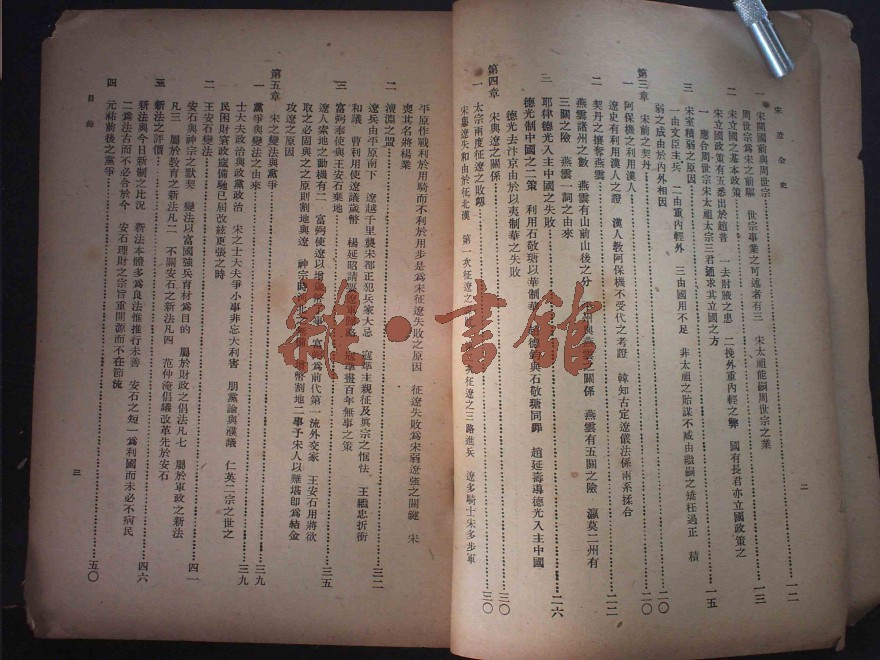 宋遼金史
一　宋開國前與周世宗……一二
周世宗爲宋之前驅　世宗事業之可述者有三　宋太祖能嗣周世宗之業
二　宋立國之基本政策……一三
宋立國政策有五悉出於趙普　一去財賦之患　二挽外重內輕之弊　國有長君亦立國政策之
一　應合周世宗宋太祖太宗三君通求其立國之方
三　宋室積弱之原因……一五
一由文臣主兵　二由重內輕外　三由國用不足　非太祖之貽謀不臧由繼嗣之矯枉過正　積
弱之成由於內外相因
第三章　宋前之契丹……二〇
一　阿保機之利用漢人……二〇
遼史有利用漢人之證　漢人敎阿保機不受代之考證　韓知古定遼儀法係兩系揉合
二　契丹之攘奪燕雲……二二
燕雲諸州之數　燕雲有山前山後之分　與燕雲之關係　燕雲有五關之險　瀛莫二州有
三關之險　燕雲一詞之由來
三　耶律德光入主中國之失敗……二六
德光制中國之二策　利用石敬瑭以華制華　趙德鈞與石敬瑭同罪　趙延壽導德光入主中國
德光去汴京由於以夷制華之失敗
第四章　宋與遼之關係……三〇
一　太宗兩度征遼之敗衂……三〇
宋遼失和由於征北漢　第一次征遼之　次征遼之三路進兵　遼多騎士宋多步軍
二
平原作戰利於用騎而不利於用步是爲宋征遼失敗之原因　征遼失敗爲宋弱遼强之關鍵　宋
喪其名將楊業
二　澶淵之盟……三二
遼兵由平原南下　遼越千里襲宋都正犯兵家大忌　寇準主親征及眞宗之恇怯　王繼忠折衝
和議　曹利用使遼議歲幣　楊延昭請　遼軍歸路　寇準畫百年無事之策
三　富弼奉使與王安石棄地……三五
遼人索地之動機有二　富弼使遼以增歲幣　富弼爲前代第一流外交家　王安石用將欲
取之必固與之之原則割地與遼　神宗時河北之　增幣割地二事予宋人以難堪卽爲結金
攻遼之原因
第五章　宋之變法與黨爭……三九
一　黨爭與變法之由來……三九
士大夫政治與政黨政治　宋之士大夫爭小事非忘大利害　朋黨論與濮議　仁英二宗之世之
民困財窮政窳備馳已屆改絃更張之時
二　王安石變法……四一
安石與神宗之默契　變法以富國强兵育材爲目的　屬於財政之倡法凡七　屬於軍政之新法
凡三　屬於敎育之新法凡二　不關安石之新法凡四　范仲淹倡議改革先於安石
三　新法之評價……四六
新法與今日新制之比況　新法本體多爲良法惟推行未善　安石之短一爲利國而未必不病民
二爲法古而不必合於今　安石理財之宗旨重開源而不在節流
四　元祐前後之黨爭……五〇
目錄
三
雜·書館